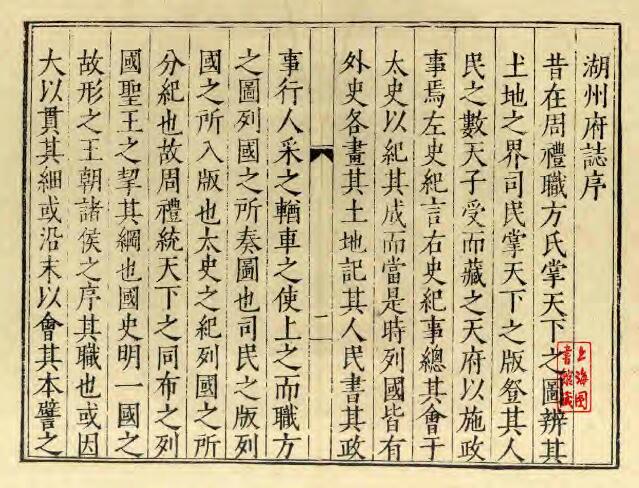 湖州府誌序
昔在周禮職方氏掌天下之圖辨其
土地之界司民掌天下之版登其人
民之數天子受而藏之天府以施政
事焉左史紀言右史紀事總其會于
太史以紀其成而當是時列國皆有
外史各畫其土地記其人民書其政
二
事行人采之輶車之使上之而職方
之圖列國之所奏圖也司民之版列
國之所入版也太史之紀列國之所
分紀也故周禮統天下之同布之列
國聖王之挈其綱也國史明一國之
故形之王朝諸侯之序其職也或因
大以貫其細或沿末以會其本譬之
上海圖
書館藏